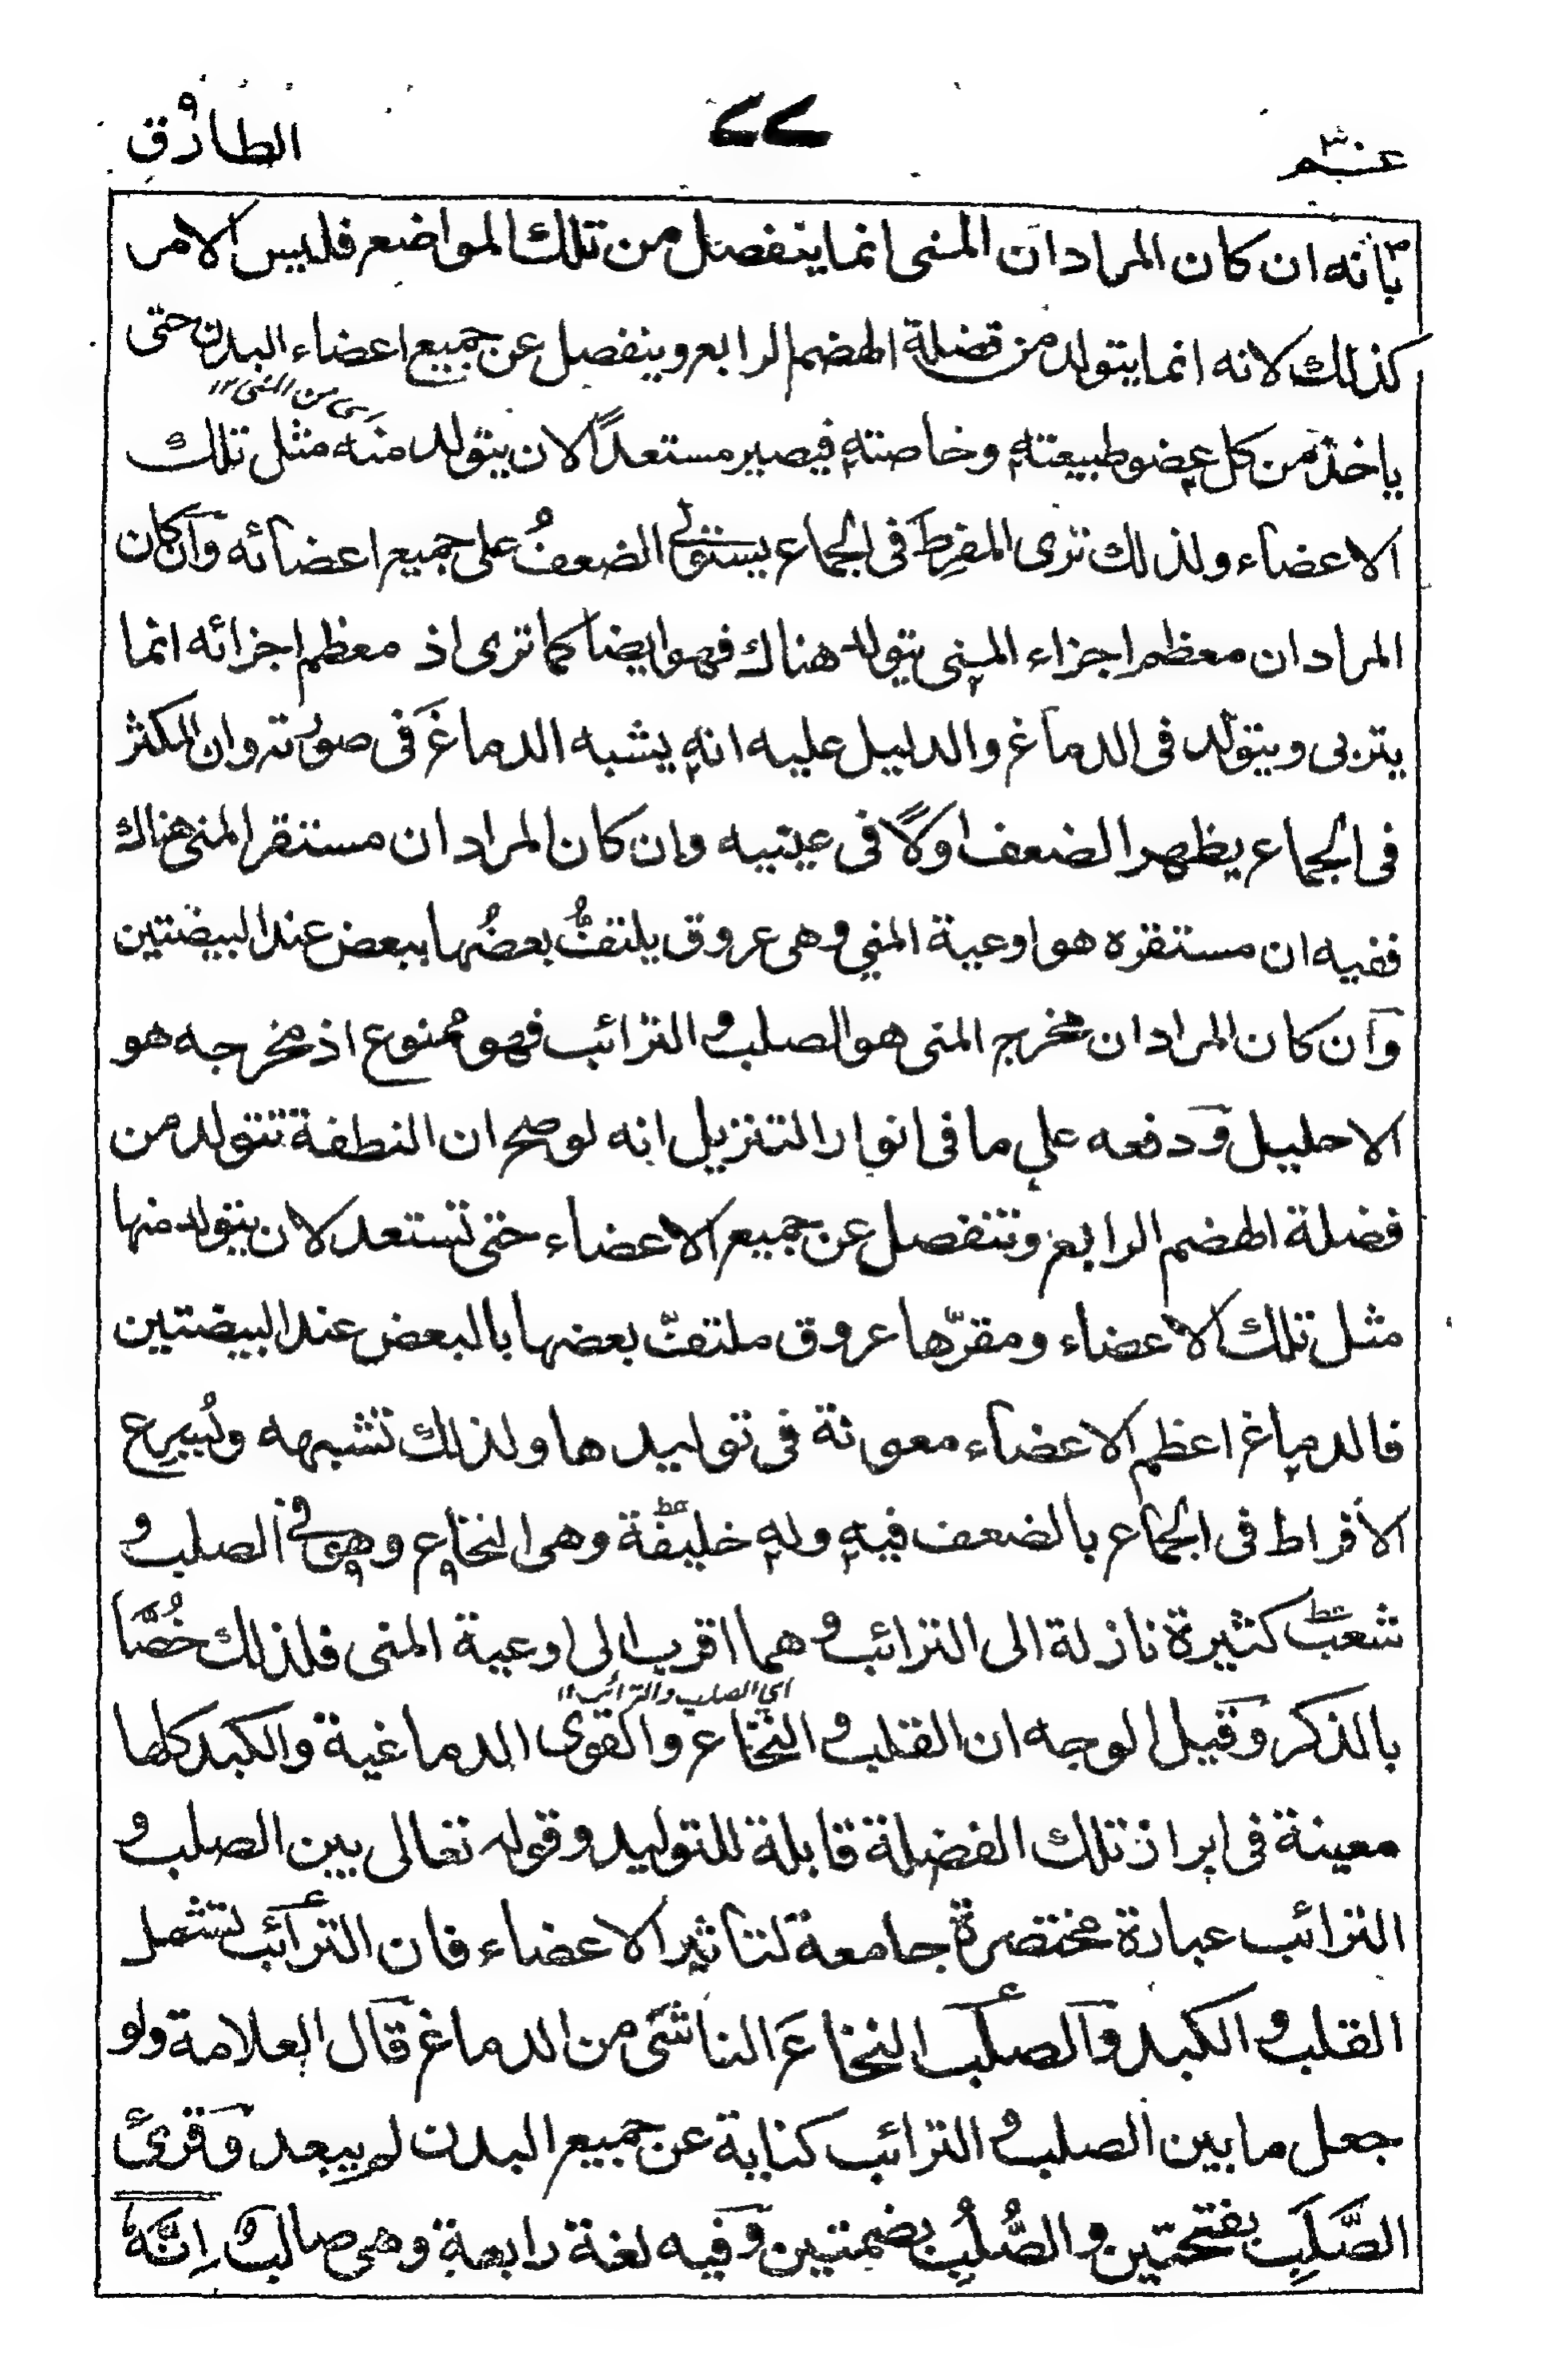 عم ٣٠
٧٧
الطارق
بانه ان كان المراد ان المنى انما ينفصل من تلك المواضع فليس الامر
كذلك لانه انما يتولد من فضلة الهضم الرابع وينفصل عن جميع اعضاء البدن حتى
ياخذ من كل عضو طبيعته وخاصته فيصير مستعدًّا لان يتولد منه مثل تلك
اى من المنى ١٢
الاعضاء ولذلك ترى المفرِط فى الجماع يستولى الضعفُ على جميع اعضائه وان كان
المراد ان معظم اجزاء المنى يتولد هناك فهو ايضا كما ترى اذ معظم اجزائه انما
يتربى ويتولد فى الدماغ والدليل عليه انه يشبه الدماغَ فى صورته وان المكثر
فى الجماع يظهر الضعف اولًا فى عينيه وان كان المراد ان مستقر المنى هناك
ففيه ان مستقره هو اوعية المنى وهى عروق يلتفُّ بعضُها ببعض عند البيضتين
وان كان المراد ان مخرج المنى هو الصلب والترائب فهو ممنوع اذ مخرجه هو
الاحليل ودفعه على ما فى انوار التنزيل انه لو صح ان النطفة تتولد من
فضلة الهضم الرابع وتنفصل عن جميع الاعضاء حتى تستعد لان يتولد منها
مثل تلك الاعضاء ومقرّها عروق ملتفّ بعضها بالبعض عند البيضتين
فالدماغ اعظم الاعضاء معونة فى توليدها ولذلك تشبهه ويُسرِع
الافراط فى الجماع بالضعف فيه وله خليفة وهى النخاع وهو فى الصلب و
شعب كثيرة نازلة الى الترائب وهما اقرب الى اوعية المنى فلذلك خُصَّا
اى الصلب والترائب ١٢
بالذكر وقيل الوجه ان القلب والنخاع والقوى الدماغية والكبد كلها
معينة فى ابراز تلك الفضلة قابلة للتوليد وقوله تعالى بين الصلب و
الترائب عبارة مختصرة جامعة لتاثير الاعضاء فان الترائب تشمل
القلب والكبد والصلب النخاعَ الناشى من الدماغ قال العلامة ولو
جعل ما بين الصلب والترائب كناية عن جميع البدن لم يبعد وقرئ
الصَّلَبِ بفتحتين والصُّلُبِ بضمتين وفيه لغة رابعة وهى صالب اِنَّهٗ